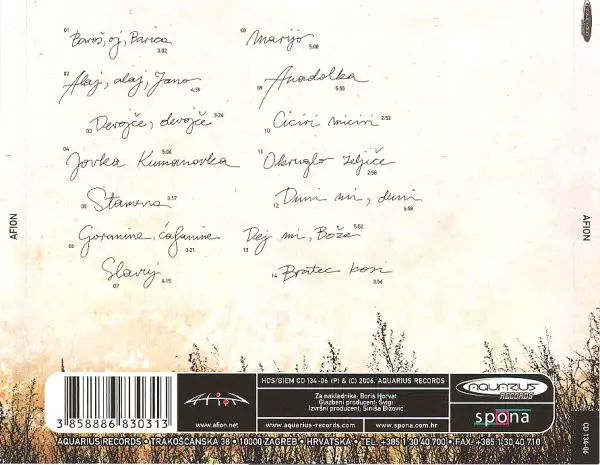 01 Baroš, oj, Barica 3:02
02 Alaj, alaj, Jano 4:59
03 Devojče, devojče 3:24
04 Jovka Kumanovka 5:06
05 Stamena 3:17
06 Goranine, ćafanine 3:21
07 Slavuj 4:15
08 Marijo 5:00
09 Anadolka 5:55
10 Ciciri miciri 2:52
11 Okruglo zeljiče 2:58
12 Duni mi, duni 4:58
13 Dej mi, Bože 5:52
14 Bratec kosi 3:56
AFION
AFION
CD 134-06
3858886830313
AFION
www.afion.net
HDS/BIEM CD 134-06 (P) & (C) 2006. AQUARIUS RECORDS
Za nakladnika: Boris Horvat
Glazbeni producent: Svigi
Izvršni producent: Siniša Bizović
www.aquarius-records.com
www.spona.com.hr
AQUARIUS
RECORDS
spona
AQUARIUS RECORDS • TRAKOŠĆANSKA 38 • 10000 ZAGREB • HRVATSKA • TEL. +385 1 30 40 700 • FAX. +385 1 30 40 710